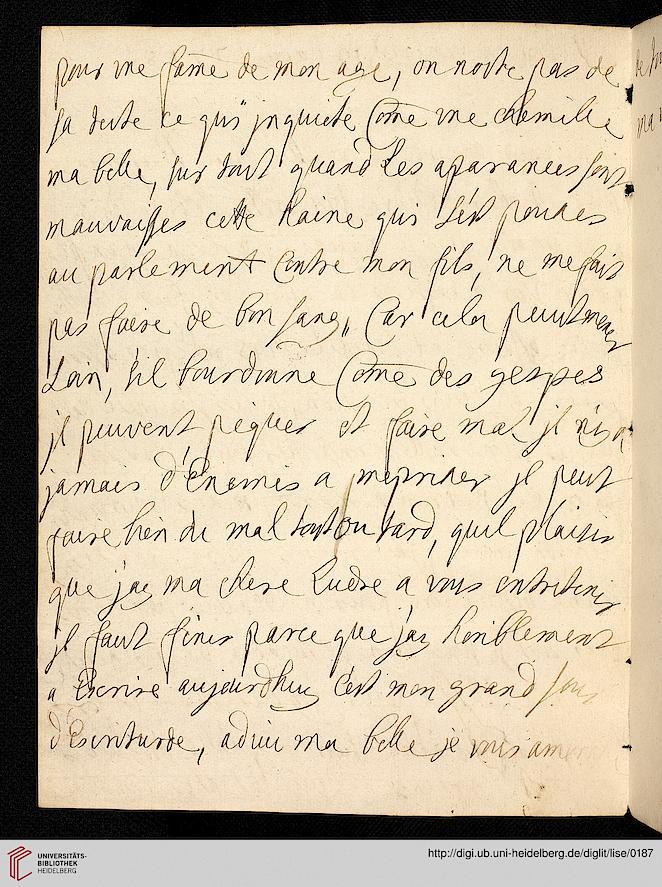 pour vne fame de mon age, on noste pas de
sa teste ce quy jnquiete Come vne chemille
ma belle, sur tout quand les aparances sont
mauvaisses cette haine qui s'est
au parlement Contre mon fils, ne me fait
pas faire de bon sang, Car cela peut mener
Loin, s'il bourdonne Come des gespes
jl peuvent piquer et faire mal jl n'y a
jamais d'Enemis a mepriser jl peut
faire bien du mal tost ou tard, quel plaisir
que jay ma chere Ludre a vous entretenir
jl faut finir parce que jay horiblement
a Escrire aujourdhuy c'est mon grand jour
d'Escriturde, adieu ma belle je
UNIVERSITÄTS-
BIBLIOTHEK
HEIDELBERG
http://digi.ub.uni-heidelberg.de/diglit/lise/0187